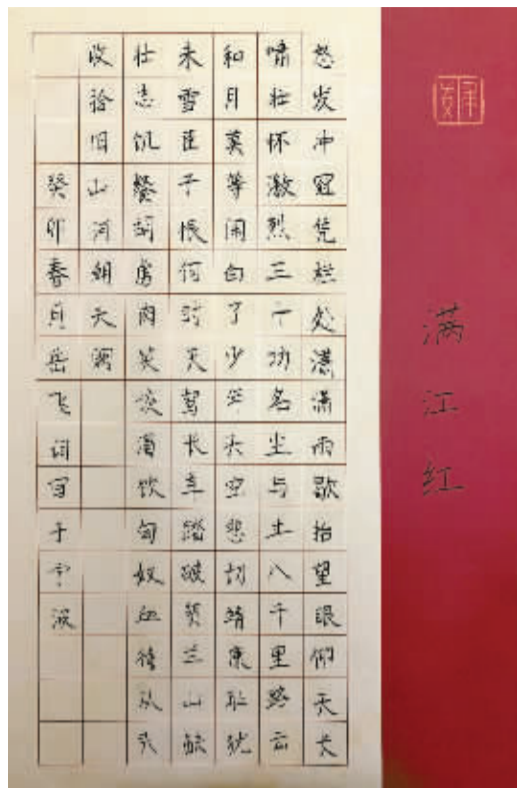 满江红
怒发冲冠凭栏处潇潇雨歇抬望眼仰天长
啸壮怀激烈三十功名尘与土八千里路云
和月莫等闲白了少年头空悲切靖康耻犹
未雪臣子恨何时灭驾长车踏破贺兰山缺
壮志饥餐胡虏肉笑谈渴饮匈奴血待从头
收拾旧山河朝天阙
癸卯春月岳飞词写于宁波